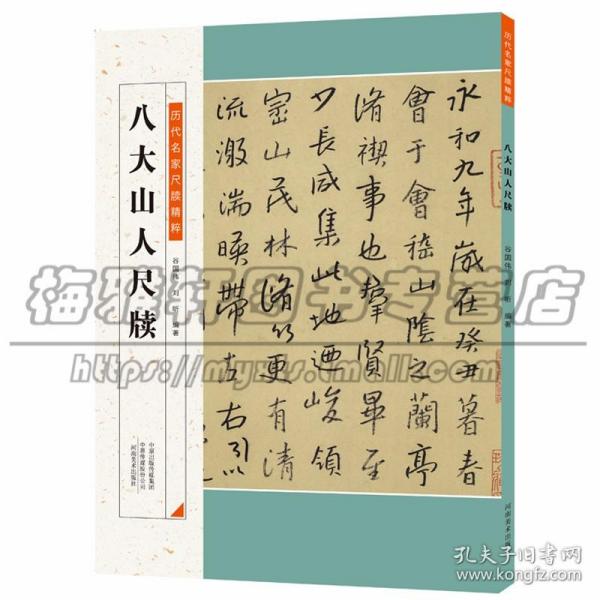 历代名家尺牍精粹
八大山人尺牍
谷国伟 刘昕 编著
中原出版传媒集团
中原传媒股份公司
河南美术出版社
永和九年歲在癸丑暮春
會于會稽山陰之蘭亭
脩禊事也羣賢畢至
少長咸集此地迺峻領
崈山茂林脩竹更有清
流激湍暎帶左右引以
历代名家尺牍精粹
八大山人尺牍
谷国伟 刘昕 编著
河南美术出版
梅雅轩图书专营店
https://myxts.tmall.com/
孔夫子旧书网
www.kongfz.com